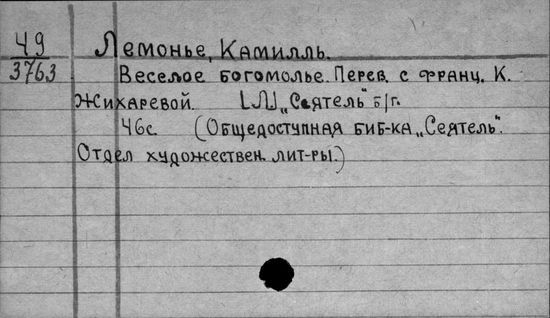 49
3763
Лемонье, Камилль.
Веселое богомолье. Перев. с франц. К.
Жихаревой. [Л] „Сеятель" б/г.
46с. (Общедоступная биб-ка „Сеятель".
Отдел художествен. лит-ры.)